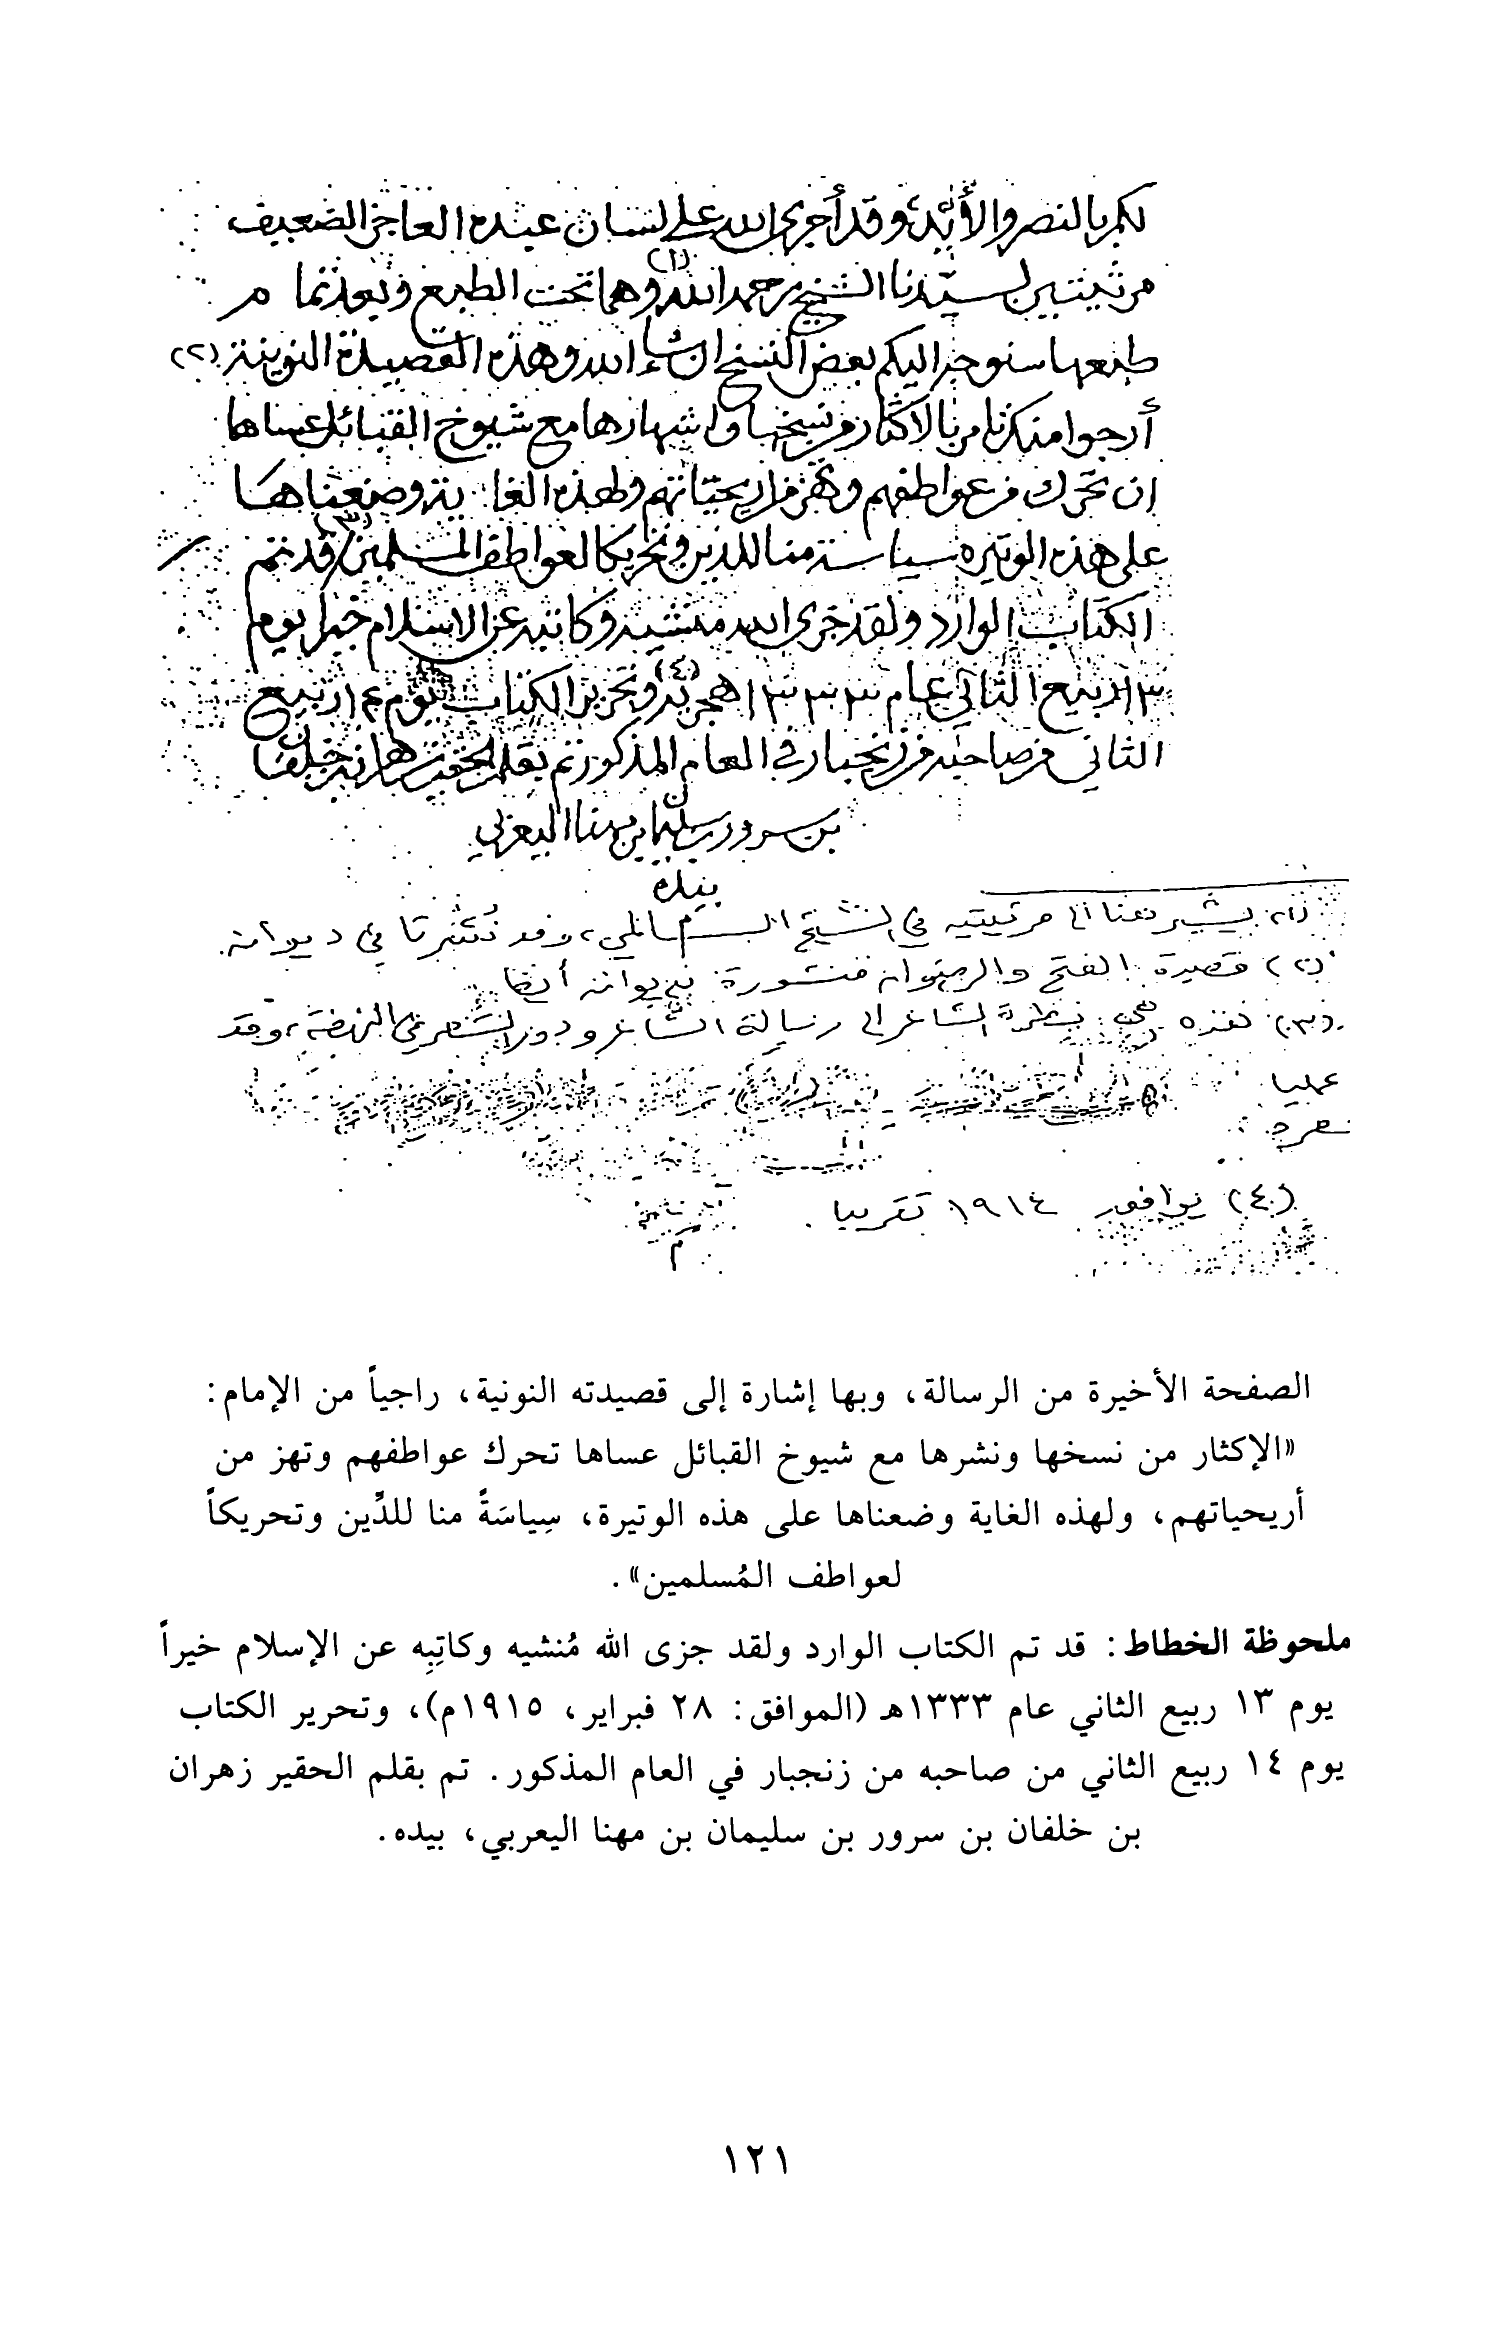 لكم بالنصر والأيد، وقد أجرى الله على لسان عبده العاجز الضعيف
مرثيتين لسيدنا الشيخ رحمه الله (١) وهما تحت الطبع وبعد تمام
طبعها سنوجه اليكم بعض النسخ ان شاء الله وهذه القصيدة النونية (٢)
أرجوا منكرنا من بالاكثار من نسخها واشهارها مع شيوخ القبائل عساها
ان تحرك من عواطفهم وتهز من اريحياتهم ولهذه الغاية وضعناها
على هذه الوتيرة سياسة منا للدين وتحريكا لعواطف المسلمين (٣) قد تم
الكتاب الوارد ولقد جزى الله منشيه وكاتبه عن الاسلام خيرا يوم
١٣ ربيع الثاني عام ١٣٣٣ هجرية (٤) وتحرير الكتاب يوم ١٤ ربيع
الثاني من صاحبه من زنجبار في العام المذكور تم بقلم الحقير زهران بن خلفان
بن سرور بن سليمان بن مهنا اليعربي
بيده
(١) يشير هنا الى مرثيتيه في الشيخ السالمي، وقد نُشرتا في ديوانه.
(٢) قصيدة الفتح والرضوان منشورة بديوانه أيضا
(٣) هذه هي نظرة الشاعر الى رسالة الشاعر ودور الشعر في النهضة، وقد
عمليا
(٤) يوافق ١٩١٤ تقريبا.
الصفحة الأخيرة من الرسالة، وبها إشارة إلى قصيدته النونية، راجياً من الإمام:
«الإكثار من نسخها ونشرها مع شيوخ القبائل عساها تحرك عواطفهم وتهز من
أريحياتهم، ولهذه الغاية وضعناها على هذه الوتيرة، سِياسَةً منا للدِّين وتحريكاً
لعواطف المُسلمين».
ملحوظة الخطاط: قد تم الكتاب الوارد ولقد جزى الله مُنشيه وكاتِبِه عن الإسلام خيراً
يوم ١٣ ربيع الثاني عام ١٣٣٣هـ (الموافق: ٢٨ فبراير، ١٩١٥م)، وتحرير الكتاب
يوم ١٤ ربيع الثاني من صاحبه من زنجبار في العام المذكور. تم بقلم الحقير زهران
بن خلفان بن سرور بن سليمان بن مهنا اليعربي، بيده.
١٢١